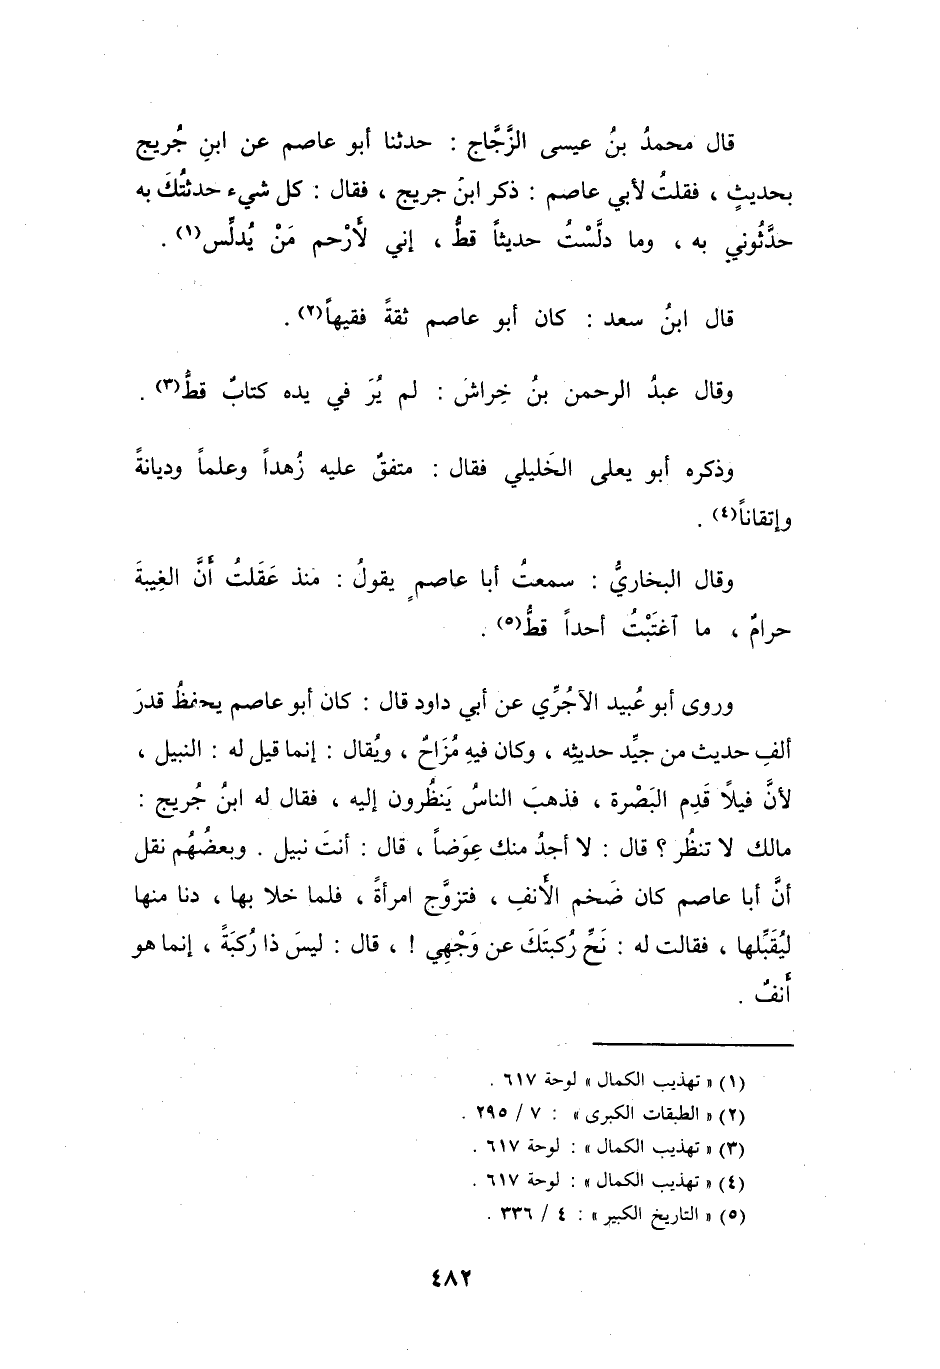 قال محمدُ بنُ عيسى الزَّجَّاج : حدثنا أبو عاصم عن ابنِ جُريج
بحديثٍ ، فقلتُ لأبي عاصم : ذكر ابنُ جريج ، فقال : كل شيء حدثتُكَ به
حدَّثُوني به ، وما دلَّسْتُ حديثاً قطُّ ، إني لأَرْحم مَنْ يُدلِّس(١) .
قال ابنُ سعد : كان أبو عاصم ثقةً فقيهاً(٢) .
وقال عبدُ الرحمن بنُ خِراشَ : لم يُرَ في يده كتابٌ قطُّ(٣) .
وذكره أبو يعلى الخَليلي فقال : متفقٌ عليه زُهداً وعلماً وديانةً
وإتقاناً(٤) .
وقال البخاريُّ : سمعتُ أبا عاصمٍ يقولُ : منذ عَقَلتُ أَنَّ الغِيبةَ
حرامٌ ، ما ٱغتَبْتُ أحداً قطُّ(٥) .
وروى أبو عُبيد الآجُرِّي عن أبي داود قال : كان أبو عاصم يحفظُ قدرَ
ألفِ حديث من جيِّد حديثِه ، وكان فيهِ مُزَاحٌ ، ويُقال : إنما قيل له : النبيل ،
لأنَّ فيلًا قَدِم البَصْرة ، فذهبَ الناسُ يَنظُرون إليه ، فقال له ابنُ جُريج :
مالك لا تنظُر ؟ قال : لا أجدُ منك عِوَضاً ، قال : أنتَ نبيل . وبعضُهُم نقل
أنَّ أبا عاصم كان ضَخم الأَنفِ ، فتزوَّج امرأةً ، فلما خلا بها ، دنا منها
ليُقَبِّلها ، فقالت له : نَحِّ رُكبتَكَ عن وَجْهِي ! ، قال : ليسَ ذا رُكبَةً ، إنما هو
أَنفٌ .
(١) « تهذيب الكمال » لوحة ٦١٧ .
(٢) « الطبقات الكبرى » : ٧ / ٢٩٥ .
(٣) « تهذيب الكمال » : لوحة ٦١٧ .
(٤) « تهذيب الكمال » : لوحة ٦١٧ .
(٥) « التاريخ الكبير » : ٤ / ٣٣٦ .
٤٨٢